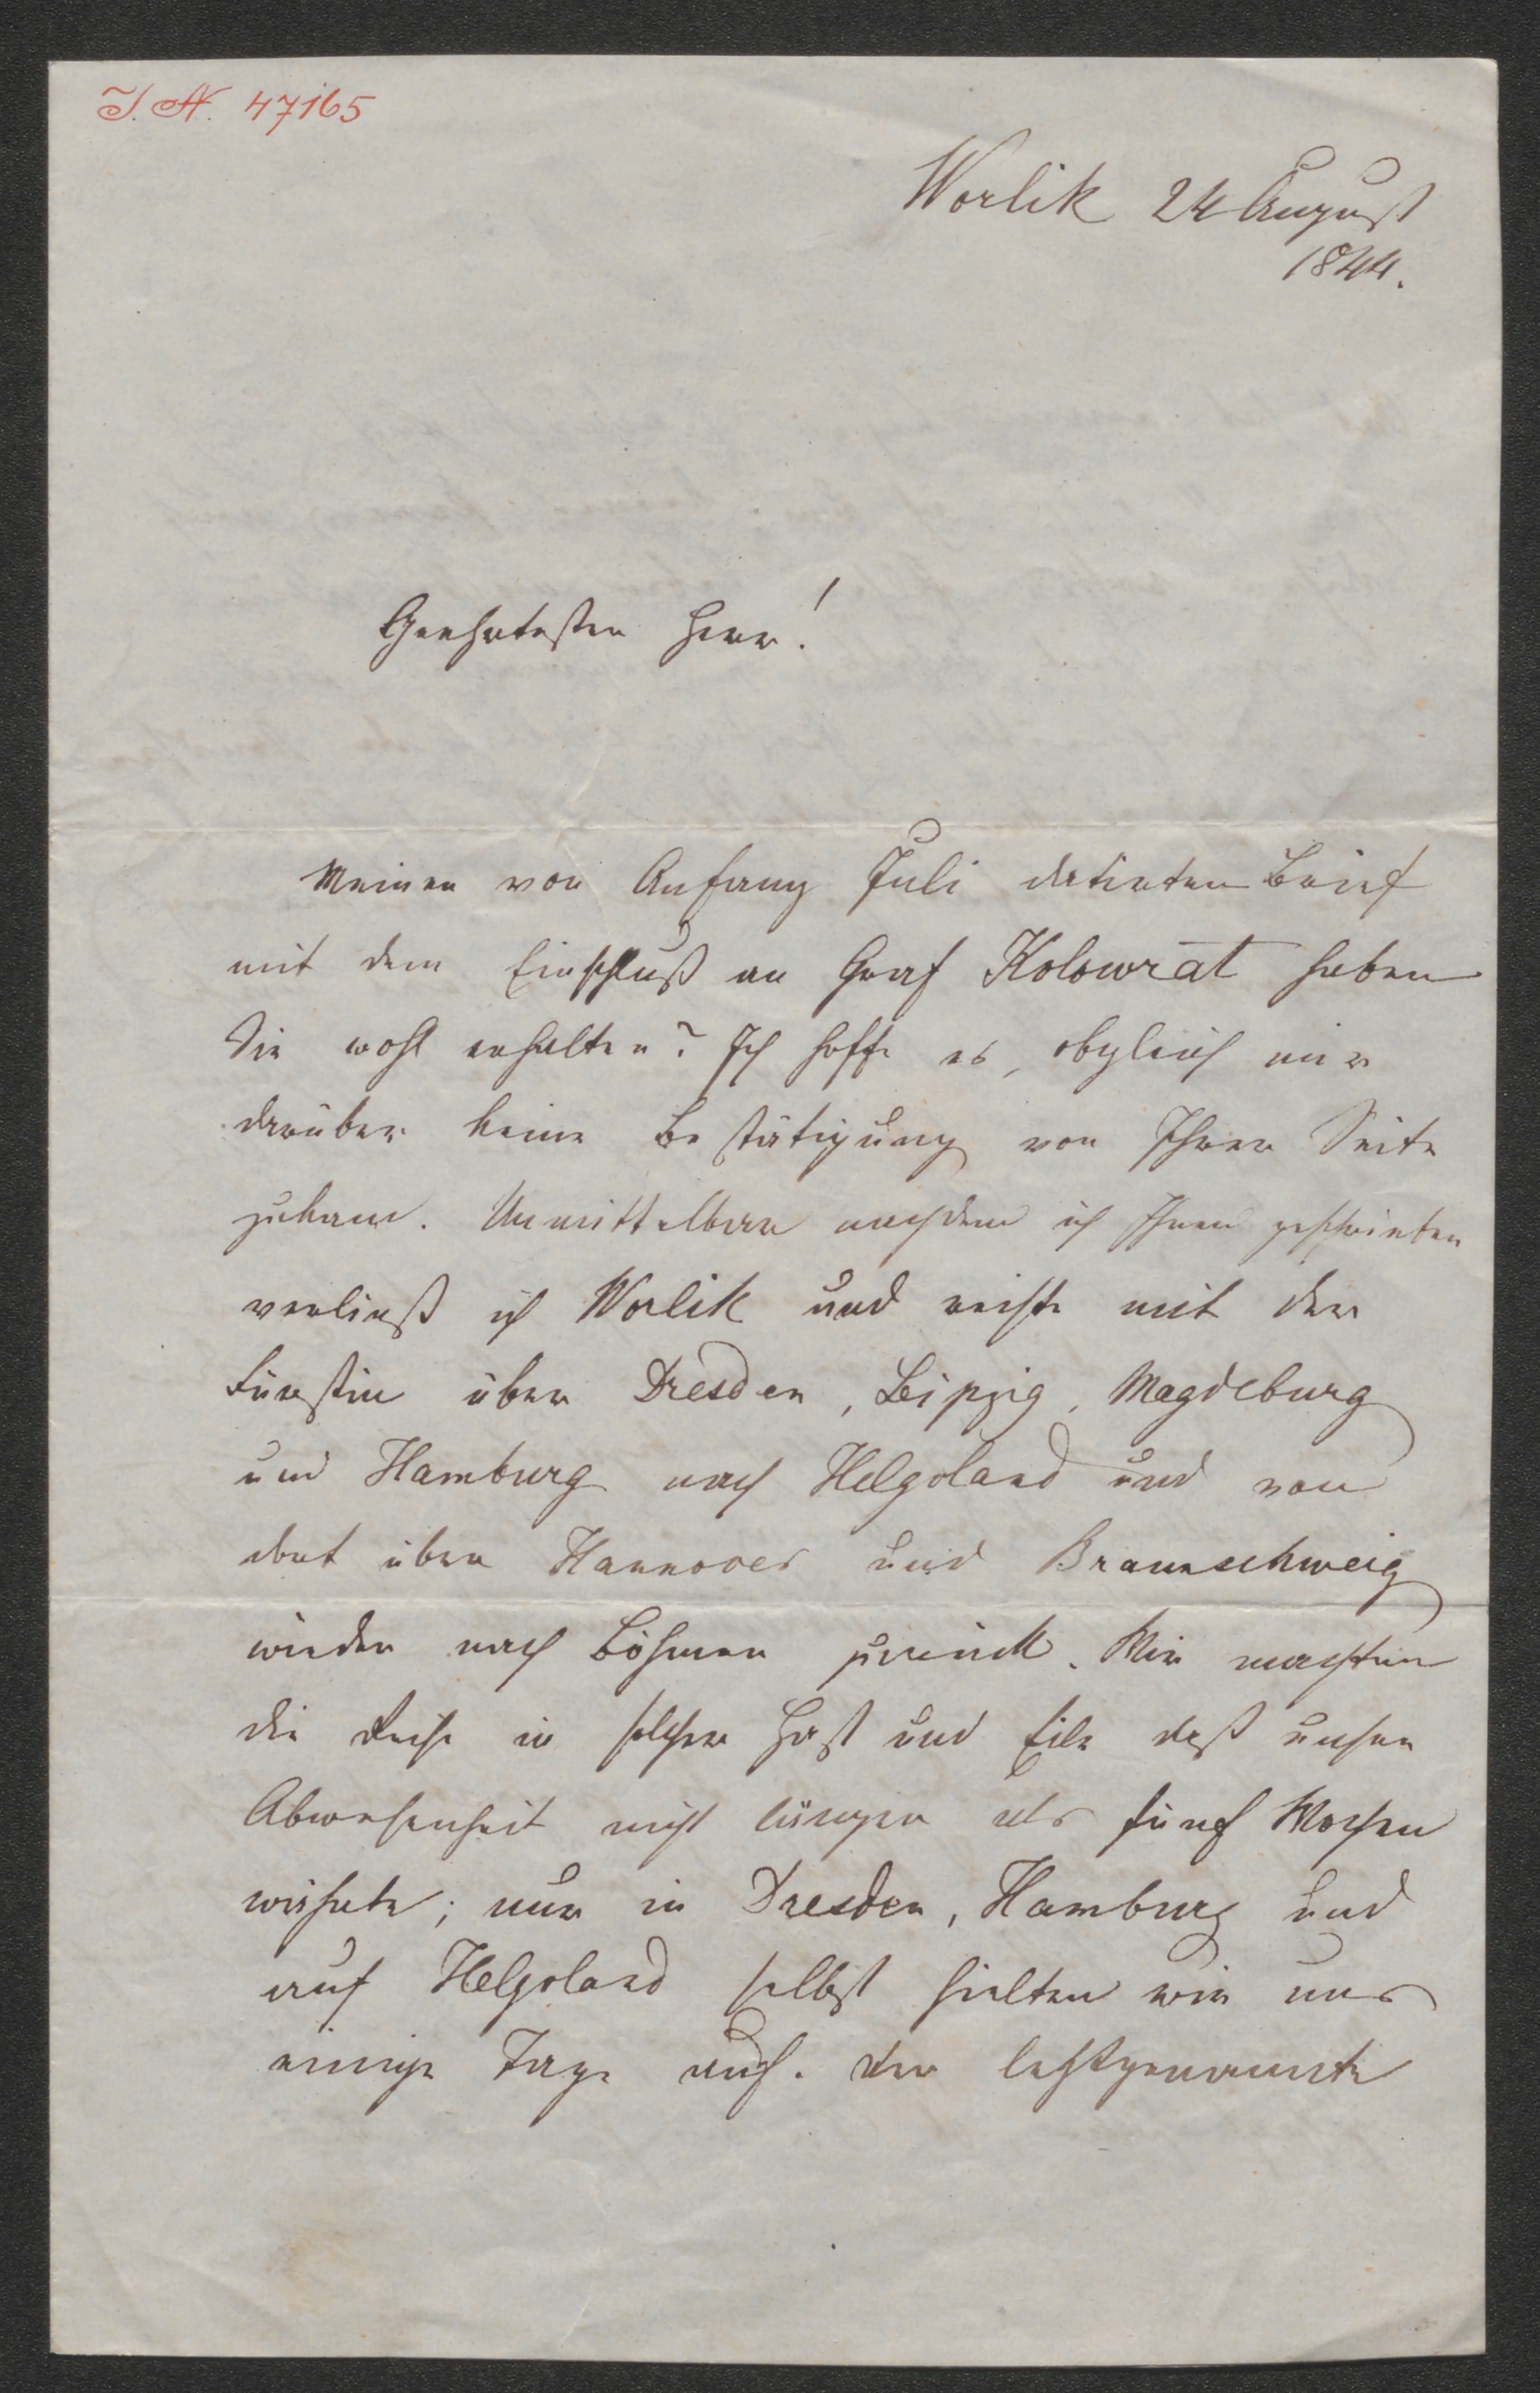 I. N. 47165
Worlik 24 August
1844.
Geehrtester Herr!
Meinen von Anfang Juli datirten Brief
mit dem Einschluß an Graf Kolowrat haben
Sie wohl erhalten? Ich hoffe es, obgleich mir
darüber keine Bestätigung von Ihrer Seite
zukam. Unmittelbar nachdem ich Ihnen geschrieben
verließ ich Worlik und reiste mit der
Fürstin über Dresden, Leipzig, Magdeburg
und Hamburg nach Helgoland und von
dort über Hannover und Braunschweig
wieder nach Böhmen zurück. Wir machten
die Reise in solcher Hast und Eile daß unsere
Abwesenheit nicht länger als fünf Wochen
währte; nur in Dresden, Hamburg und
auf Helgoland selbst hielten wir uns
einige Tage auf. Der letztgenannte